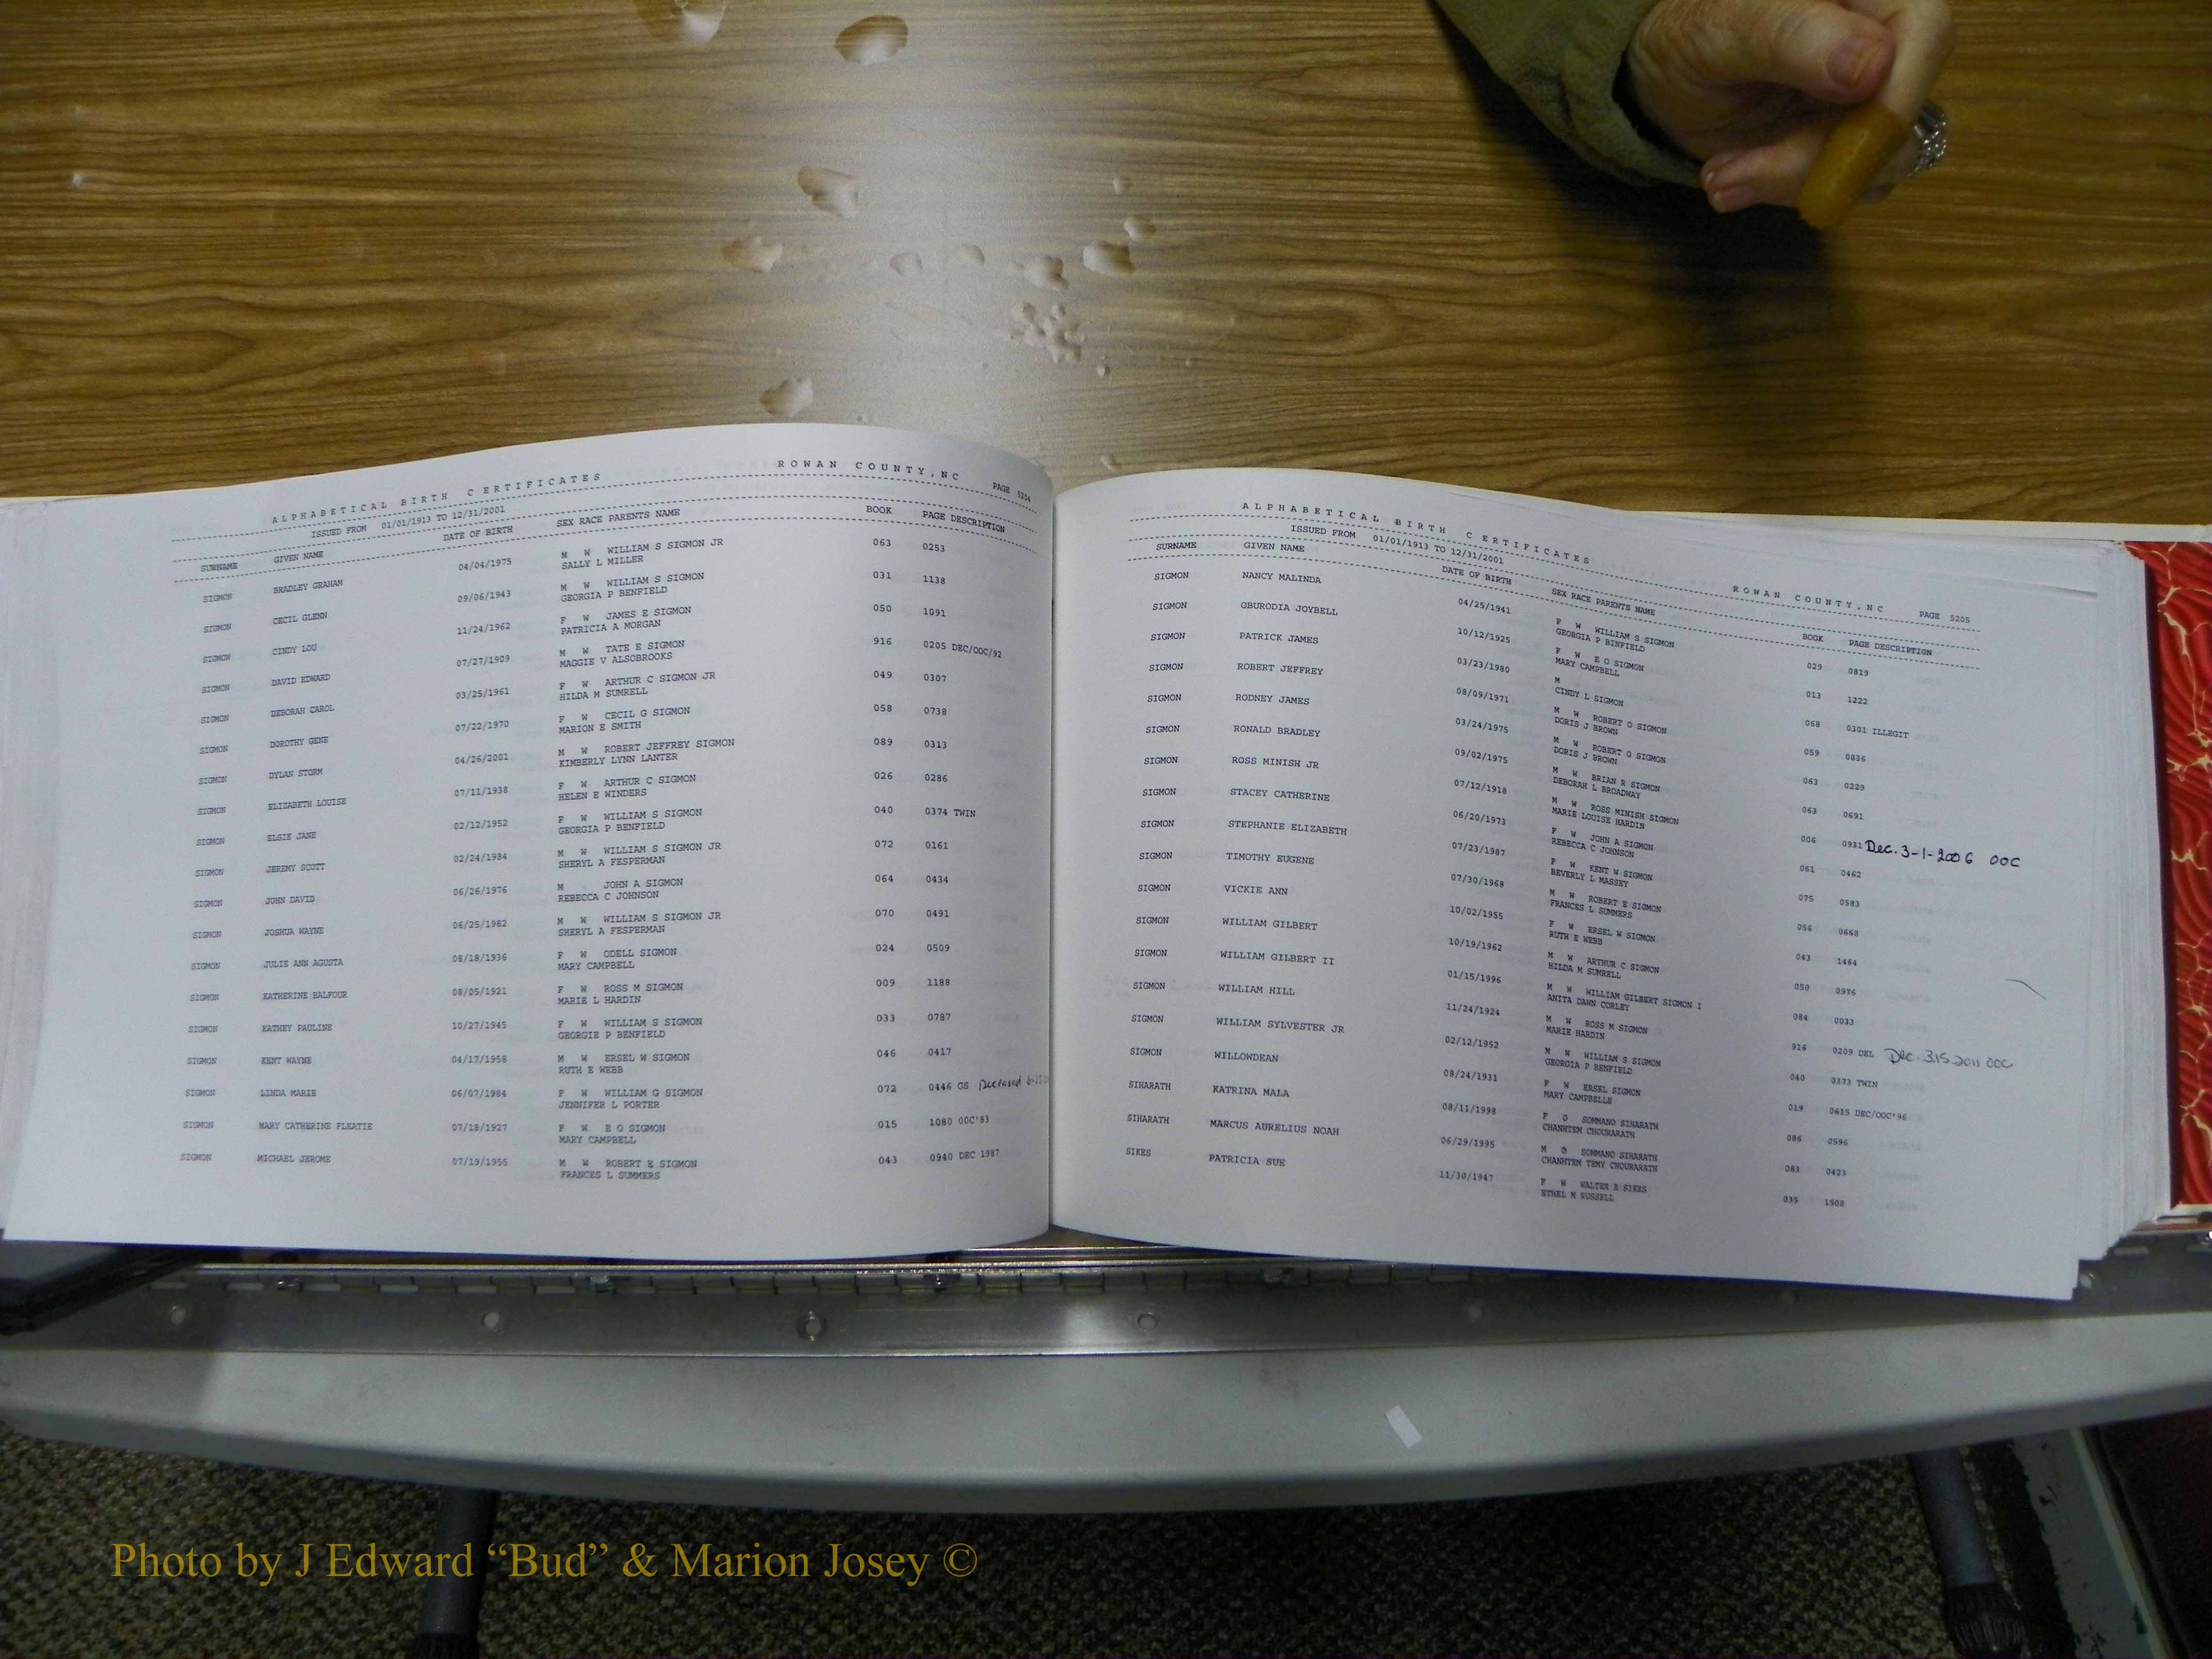 ALPHABETICAL BIRTH CERTIFICATES ROWAN COUNTY, NC PAGE 5204
ISSUED FROM 01/01/1913 TO 12/31/2001
SURNAME GIVEN NAME DATE OF BIRTH SEX RACE PARENTS NAME BOOK PAGE DESCRIPTION
SIGMON BRADLEY GRAHAM 04/04/1975 M W WILLIAM S SIGMON JR 063 0253
SALLY L MILLER
SIGMON CECIL GLENN 09/06/1943 M W WILLIAM S SIGMON 031 1138
GEORGIA P BENFIELD
SIGMON CINDY LOU 11/24/1962 F W JAMES E SIGMON 050 1091
PATRICIA A MORGAN
SIGMON DAVID EDWARD 07/27/1909 M W TATE E SIGMON 916 0205 DEC/OOC/92
MAGGIE V ALSOBROOKS
SIGMON DEBORAH CAROL 03/25/1961 F W ARTHUR C SIGMON JR 049 0307
HILDA M SUMRELL
SIGMON DOROTHY GENE 07/22/1970 F W CECIL G SIGMON 058 0738
MARION E SMITH
SIGMON DYLAN STORM 04/26/2001 M W ROBERT JEFFREY SIGMON 089 0313
KIMBERLY LYNN LANTER
SIGMON ELIZABETH LOUISE 07/11/1938 F W ARTHUR C SIGMON 026 0286
HELEN E WINDERS
SIGMON ELSIE JANE 02/12/1952 F W WILLIAM S SIGMON 040 0374 TWIN
GEORGIA P BENFIELD
SIGMON JEREMY SCOTT 02/24/1984 M W WILLIAM S SIGMON JR 072 0161
SHERYL A FESPERMAN
SIGMON JOHN DAVID 06/26/1976 M JOHN A SIGMON 064 0434
REBECCA C JOHNSON
SIGMON JOSHUA WAYNE 06/25/1982 M W WILLIAM S SIGMON JR 070 0491
SHERYL A FESPERMAN
SIGMON JULIE ANN AGUSTA 08/18/1936 F W ODELL SIGMON 024 0509
MARY CAMPBELL
SIGMON KATHERINE BALFOUR 08/05/1921 F W ROSS M SIGMON 009 1188
MARIE L HARDIN
SIGMON KATHEY PAULINE 10/27/1945 F W WILLIAM S SIGMON 033 0787
GEORGIE P BENFIELD
SIGMON KENT WAYNE 04/17/1958 M W ERSEL W SIGMON 046 0417
RUTH E WEBB
SIGMON LINDA MARIE 06/07/1984 F W WILLIAM G SIGMON 072 0446 GS Deceased
JENNIFER L PORTER
SIGMON MARY CATHERINE FLEATIE 07/18/1927 F W E O SIGMON 015 1080 OOC'83
MARY CAMPBELL
SIGMON MICHAEL JEROME 07/19/1955 M W ROBERT E SIGMON 043 0940 DEC 1987
FRANCES L SUMMERS
ALPHABETICAL BIRTH CERTIFICATES ROWAN COUNTY, NC PAGE 5205
ISSUED FROM 01/01/1913 TO 12/31/2001
SURNAME GIVEN NAME DATE OF BIRTH SEX RACE PARENTS NAME BOOK PAGE DESCRIPTION
SIGMON NANCY MALINDA 04/25/1941 F W WILLIAM S SIGMON 029 0819
GEORGIA P BINFIELD
SIGMON OBURODIA JOYBELL 10/12/1925 F W E O SIGMON 013 1222
MARY CAMPBELL
SIGMON PATRICK JAMES 03/23/1980 M 068 0301 ILLEGIT
CINDY L SIGMON
SIGMON ROBERT JEFFREY 08/09/1971 M W ROBERT O SIGMON 059 0836
DORIS J BROWN
SIGMON RODNEY JAMES 03/24/1975 M W ROBERT O SIGMON 063 0229
DORIS J BROWN
SIGMON RONALD BRADLEY 09/02/1975 M W BRIAN R SIGMON 063 0691
DEBORAH L BROADWAY
SIGMON ROSS MINISH JR 07/12/1918 M W ROSS MINISH SIGMON 006 0931 Dec. 3-1-2006 OOC
MARIE LOUISE HARDIN
SIGMON STACEY CATHERINE 06/20/1973 F W JOHN A SIGMON 061 0462
REBECCA C JOHNSON
SIGMON STEPHANIE ELIZABETH 07/23/1987 F W KENT W SIGMON 075 0583
BEVERLY L MASSEY
SIGMON TIMOTHY EUGENE 07/30/1968 M W ROBERT E SIGMON 056 0668
FRANCES L SUMMERS
SIGMON VICKIE ANN 10/02/1955 F W ERSEL W SIGMON 043 1464
RUTH E WEBB
SIGMON WILLIAM GILBERT 10/19/1962 M W ARTHUR C SIGMON 050 0976
HILDA M SUMRELL
SIGMON WILLIAM GILBERT II 01/15/1996 M W WILLIAM GILBERT SIGMON I 084 0033
ANITA DAWN CORLEY
SIGMON WILLIAM HILL 11/24/1924 M W ROSS M SIGMON 916 0209 DEL Dec 3.15.2011 OOC
MARIE HARDIN
SIGMON WILLIAM SYLVESTER JR 02/12/1952 M W WILLIAM S SIGMON 040 0373 TWIN
GEORGIA P BENFIELD
SIGMON WILLOWDEAN 08/24/1931 F W ERSEL SIGMON 019 0615 DEC/OOC'96
MARY CAMPBELLE
SIHARATH KATRINA MALA 08/11/1998 F O SOMMANO SIHARATH 086 0596
CHANHTEM CHOURARATH
SIHARATH MARCUS AURELIUS NOAH 06/29/1995 M O SOMMANO SIHARATH 083 0423
CHANHTEM TEMY CHOURARATH
SIKES PATRICIA SUE 11/30/1947 F W WALTER R SIKES 035 1508
ETHEL M RUSSELL
Photo by J Edward “Bud” & Marion Josey ©